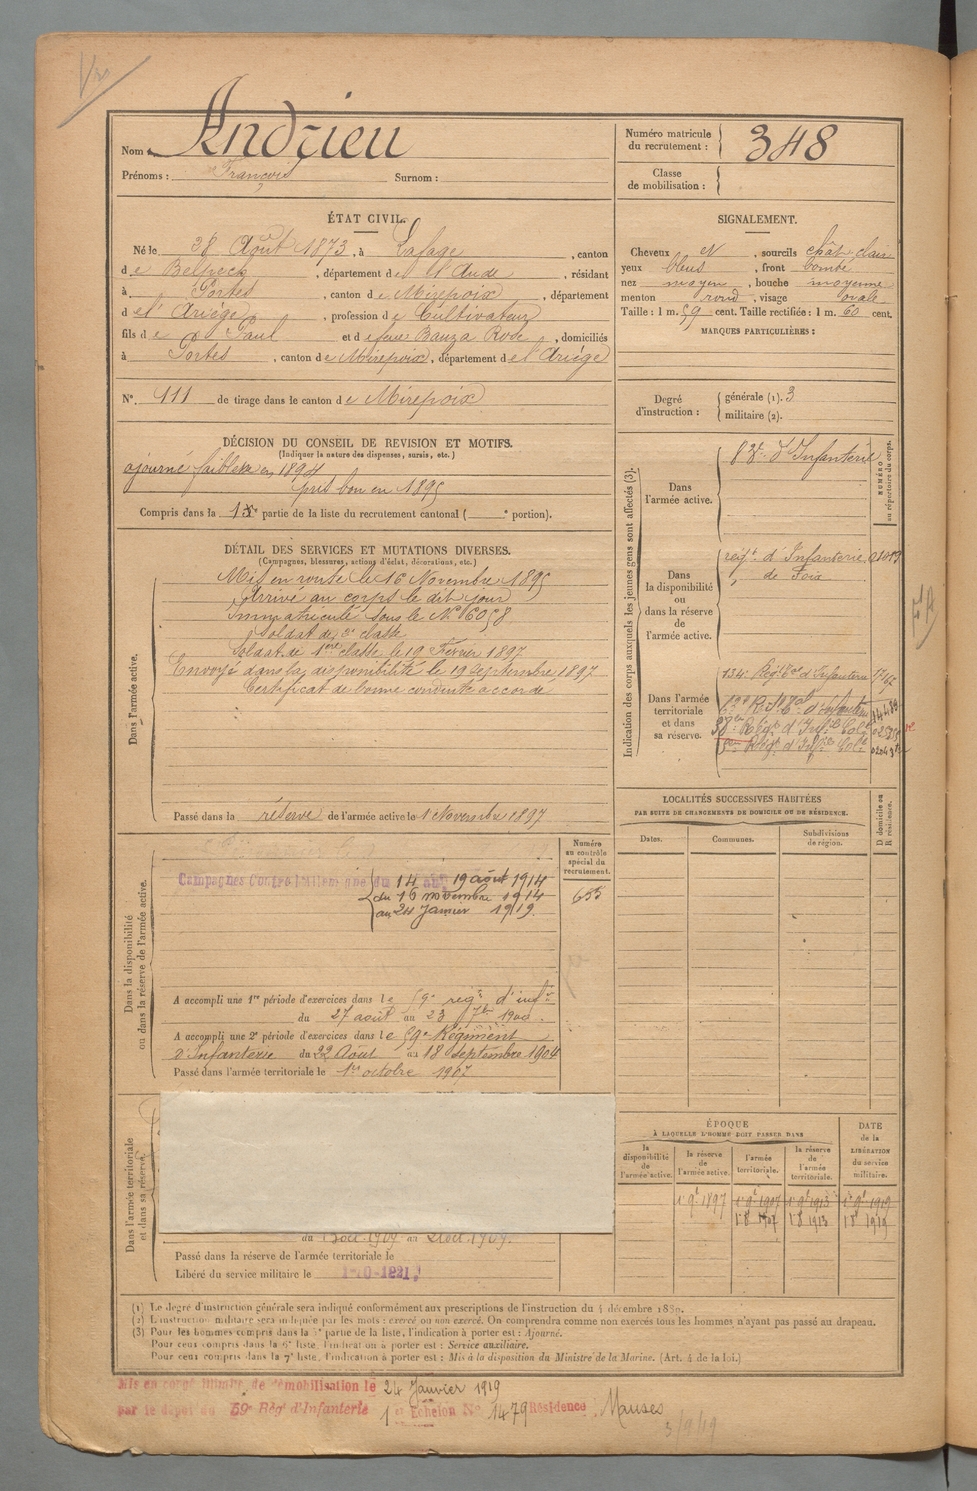 Nom Andrieu
Prénoms : François Surnom :
Numéro matricule du recrutement : 348
Classe de mobilisation :
ÉTAT CIVIL.
Né le 28 Août 1873, à Lafage, canton
de Belpech, département de l'Aude, résidant
à Portes, canton de Mirepoix, département
d el' Ariège, profession de Cultivateur
fils de Paul et de feue Bauza Rose, domiciliés
à Portes, canton de Mirepoix, département de l'Ariège
N°. 111 de tirage dans le canton de Mirepoix
SIGNALEMENT.
Cheveux et, sourcils chât. clair
yeux bleus, front bombé
nez moyen, bouche moyenne
menton rond, visage ovale
Taille : 1 m. 59 cent. Taille rectifiée : 1 m. 60 cent.
MARQUES PARTICULIÈRES :
Degré d'instruction : générale (1). 3
militaire (2).
DÉCISION DU CONSEIL DE REVISION ET MOTIFS.
(Indiquer la nature des dispenses, sursis, etc.)
ajourné faiblesse en 1894
pris bon en 1895
Compris dans la 1re partie de la liste du recrutement cantonal ( e portion).
DÉTAIL DES SERVICES ET MUTATIONS DIVERSES.
(Campagnes, blessures, actions d'éclat, décorations, etc.)
Dans l'armée active.
Mis en route le 16 Novembre 1895
Arrivé au corps le dit jour
Immatriculé sous le N° 6058
Soldat de 2e classe
Soldat de 1ère classe le 19 Février 1897
Envoyé dans la disponibilité le 19 Septembre 1897
Certificat de bonne conduite accordé
Passé dans la réserve de l'armée active le 1 Novembre 1897
Indication des corps auxquels les jeunes gens sont affectés (3).
NUMÉRO au répertoire du corps.
Dans l'armée active.
83e d'Infanterie
Dans la disponibilité ou dans la réserve de l'armée active.
régt d'Infanterie
de Foix
Dans l'armée territoriale et dans sa réserve.
134e Régt tal d'Infanterie
LOCALITÉS SUCCESSIVES HABITÉES
PAR SUITE DE CHANGEMENTS DE DOMICILE OU DE RÉSIDENCE.
Dates. Communes. Subdivisions de région. D domicile ou R résidence.
Dans la disponibilité ou dans la réserve de l'armée active.
Numéro au contrôle spécial du recrutement.
655
Campagnes Contre l'Allemagne du 14 au 19 août 1914
du 16 novembre 1914
au 24 Janvier 1919.
A accompli une 1re période d'exercices dans le 59e régt d'infie
du 27 août au 23 7bre 1900.
A accompli une 2e période d'exercices dans le 59e Régiment
d'Infanterie du 22 Août au 18 Septembre 1904
Passé dans l'armée territoriale le 1er octobre 1907
Dans l'armée territoriale et dans sa réserve.
oct. 1909 au 21 oct. 1909.
Passé dans la réserve de l'armée territoriale le
Libéré du service militaire le 1-10-1921
ÉPOQUE
A LAQUELLE L'HOMME DOIT PASSER DANS
la disponibilité de l'armée active. la réserve de l'armée active. l'armée territoriale. la réserve de l'armée territoriale.
DATE de la LIBÉRATION du service militaire.
1 9t 1897 1 9t 1907 1 9t 1913 1 9t 1919
1 8t 1907 1 8t 1913 1 8t 1919
(1) Le degré d'instruction générale sera indiqué conformément aux prescriptions de l'instruction du 4 décembre 1889.
(2) L'instruction militaire sera indiquée par les mots : exercé ou non exercé. On comprendra comme non exercés tous les hommes n'ayant pas passé au drapeau.
(3) Pour les hommes compris dans la 5e partie de la liste, l'indication à porter est : Ajourné.
Pour ceux compris dans la 6e liste, l'indication à porter est : Service auxiliaire.
Pour ceux compris dans la 7e liste, l'indication à porter est : Mis à la disposition du Ministre de la Marine. (Art. 4 de la loi.)
Mis en congé illimité de démobilisation le 24 Janvier 1919
par le dépôt du 59e Rég d'Infanterie 1er Echelon N° 1479 Résidence Manses
3/9/19